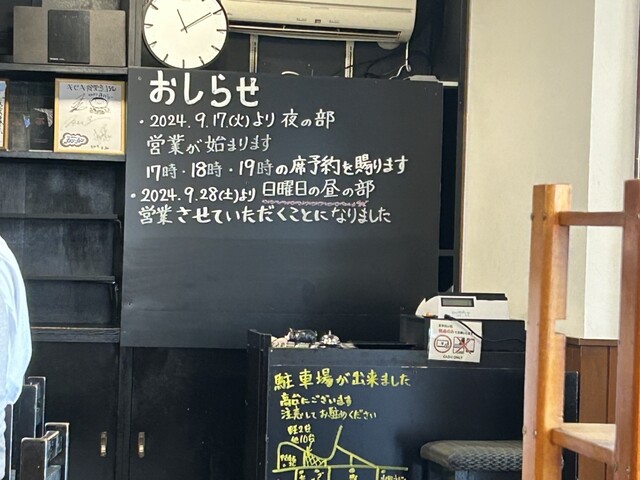 おしらせ
・2024.9.17.(火)より 夜の部
営業が始まります
17時・18時・19時の席予約を賜ります
・2024.9.28(土)より 日曜日の昼の部
営業させていただくことになりました
駐車場が出来ました
高台にございます
注意してお駐めください